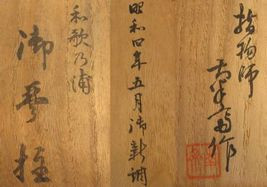 指物師
作
昭和四年五月御新調
和歌乃浦
御琴柱